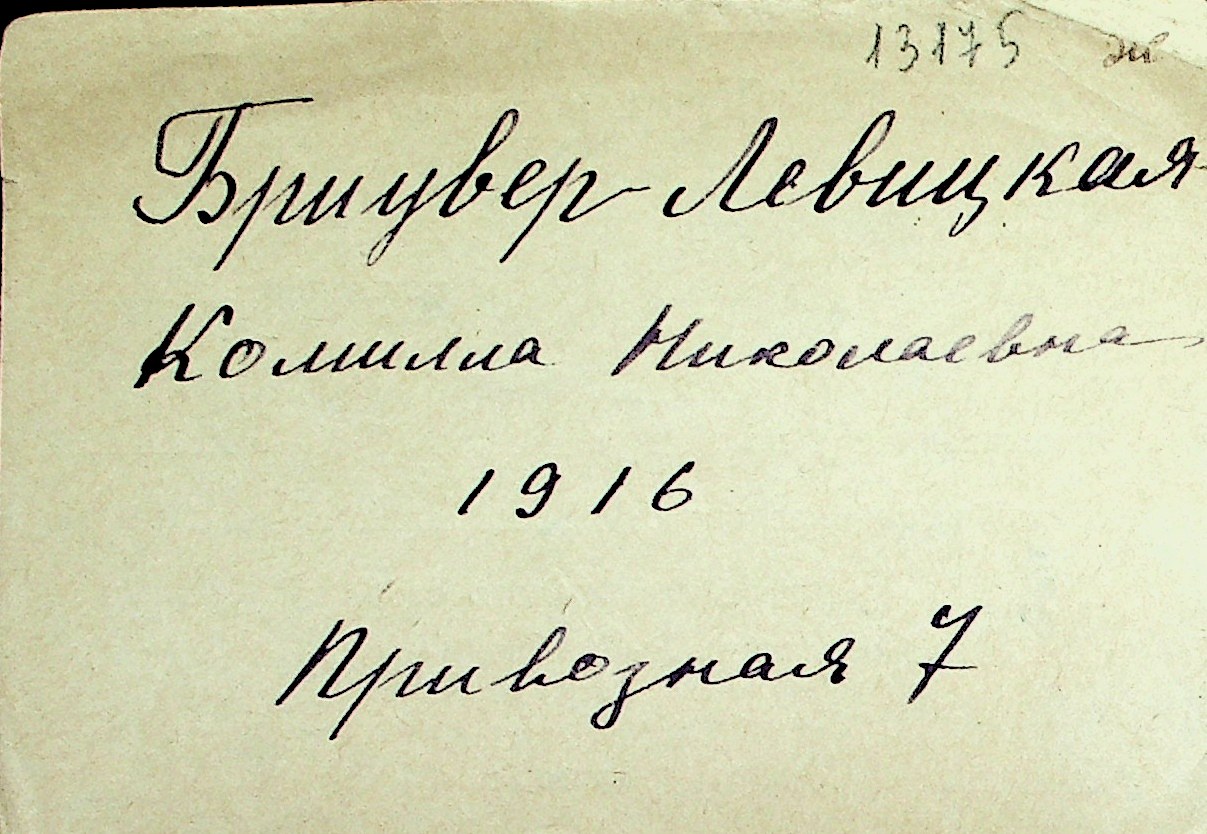 13175 эк
Бриувер Левицкая
Комилла Николаевна
1916
Привозная 7